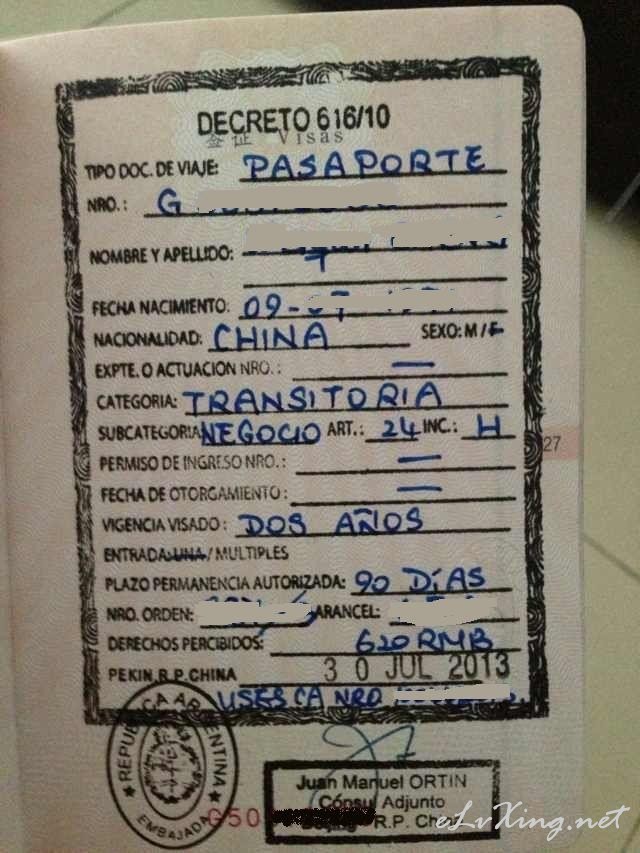 DECRETO 616/10
签证 Visas
TIPO DOC. DE VIAJE: PASAPORTE
NRO.: G
NOMBRE Y APELLIDO:
FECHA NACIMIENTO: 09-07-
NACIONALIDAD: CHINA SEXO: M/F
EXPTE. O ACTUACION NRO.: —
CATEGORIA: TRANSITORIA
SUBCATEGORIA NEGOCIO ART.: 24 INC.: H
PERMISO DE INGRESO NRO.: —
27
FECHA DE OTORGAMIENTO: —
VIGENCIA VISADO: DOS AÑOS
ENTRADA: UNA / MULTIPLES
PLAZO PERMANENCIA AUTORIZADA: 90 DÍAS
NRO. ORDEN: ARANCEL:
DERECHOS PERCIBIDOS: 620 RMB
PEKIN, R.P. CHINA 30 JUL 2013
NRO
REPUBLICA ARGENTINA
EMBAJADA
G50
Juan Manuel ORTIN
Cónsul Adjunto
Beijing R.P. China
eLvXing.net